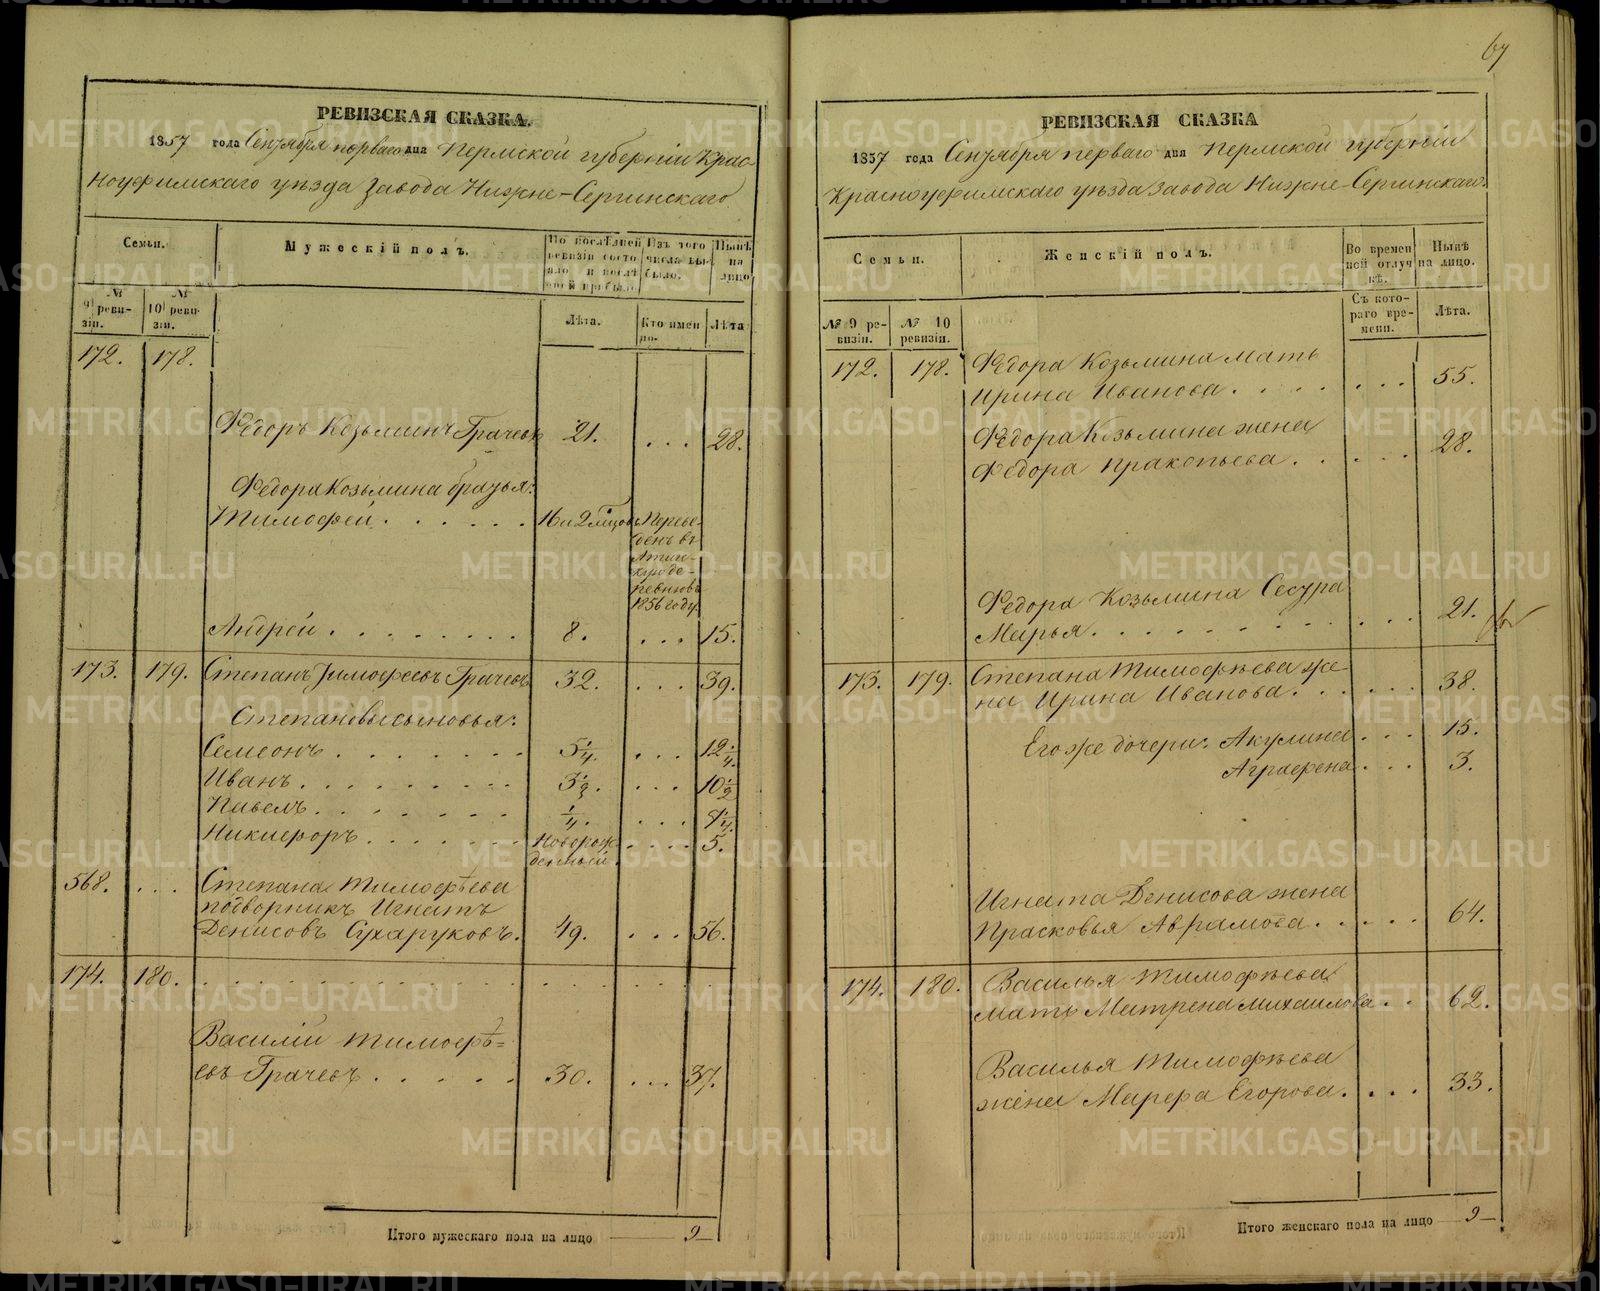 67
РЕВИЗСКАЯ СКАЗКА.
1857 года Сентября перваго дня Пермской губерніи Крас-
ноуфимскаго уѣзда Завода Нижне-Сергинскаго
Семьи.
Мужескій полъ.
По послѣдней ревизіи состояло и послѣ оной прибыло.
Изъ того числа выбыло.
Нынѣ на лицо
№ 9й ревизіи.
№ 10й ревизіи.
Лѣта.
Кто именно.
Лѣта
172. 178.
Ѳедоръ Козьминъ Грачевъ 21. . . . 28.
Ѳедора Козьмина братья:
Тимофей . . . . . . 16 и 2 мѣцовъ Переве-
денъ въ
де-
ревню въ
1856 году.
Андрей . . . . . . . . 8. . . . 15.
173. 179. Степанъ Тимофеевъ Грачевъ 32. . . . 39.
Степановы сыновья:
Семеонъ . . . . . . . 5¼. . . . 12¼.
Иванъ . . . . . . . . . 3½. . . . 10½
Павелъ . . . . . . . . ¼. . . . 7¼.
Никифоръ . . . . . . . Новорож- . . . . 5.
денный.
568. . . . Степана Тимофѣева
подворникъ Игнатъ
Денисовъ Сухаруковъ. 49. . . . 56.
174. 180. . . . . . . . . . .
Василій Тимофѣ=
евъ Грачевъ . . . . . 30. . . . 37.
Итого мужескаго пола на лицо 9
РЕВИЗСКАЯ СКАЗКА
1857 года Сентября перваго дня Пермской губерніи
Красноуфимскаго уѣзда Завода Нижне-Сергинскаго.
Семьи.
Женскій полъ.
Во временной отлучкѣ.
Нынѣ на лицо.
№ 9 ревизіи.
№ 10 ревизіи.
Съ котораго времени.
Лѣта.
172. 178. Ѳедора Козьмина мать
Ирина Иванова . . . . . . . 55.
Ѳедора Козьмина жена
Ѳедора Пракопьева . . . . . 28.
Ѳедора Козьмина Сестра
Марья . . . . . . . . . . . 21.
173. 179. Степана Тимофѣева же-
на Ирина Иванова . . . . . . 38.
Его же дочери: Акулина . . . 15.
Аграфена . . . 3.
Игната Денисова жена
Прасковья Аврамова . . . . . 64.
174. 180. Василья Тимофѣева
мать Матрена Михаилова . . 62.
Василья Тимофѣева
жена Марфа Егорова . . . . 33.
Итого женскаго пола на лицо 9
METRIKI.GASO-URAL.RU